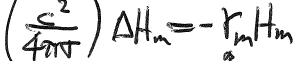 (c²/4πσ) ΔHₘ = -γₘHₘ